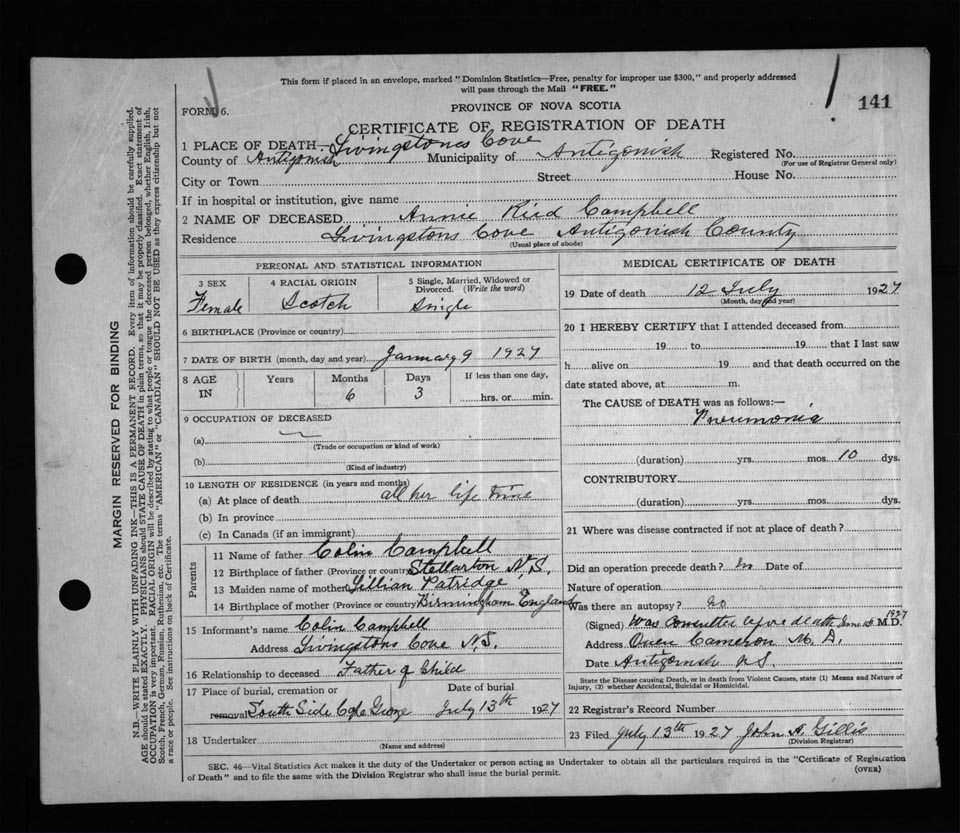 This form if placed in an envelope, marked "Dominion Statistics—Free, penalty for improper use $300," and properly addressed
will pass through the Mail "FREE."
FORM 6.
PROVINCE OF NOVA SCOTIA
141
CERTIFICATE OF REGISTRATION OF DEATH
1 PLACE OF DEATH Livingstones Cove
County of Antigonish Municipality of Antigonish Registered No.
(For use of Registrar General only)
City or Town Street House No.
If in hospital or institution, give name
2 NAME OF DECEASED Annie Reid Campbell
Residence Livingstons Cove Antigonish County
(Usual place of abode)
PERSONAL AND STATISTICAL INFORMATION
3 SEX 4 RACIAL ORIGIN 5 Single, Married, Widowed or
Divorced. (Write the word)
Female Scotch Single
6 BIRTHPLACE (Province or country)
7 DATE OF BIRTH (month, day and year) January 9 1927
8 AGE Years Months Days If less than one day,
IN 6 3 hrs. or min.
9 OCCUPATION OF DECEASED
(a)
(Trade or occupation or kind of work)
(b)
(Kind of industry)
10 LENGTH OF RESIDENCE (in years and months)
(a) At place of death all her life time
(b) In province
(c) In Canada (if an immigrant)
Parents
11 Name of father Colin Campbell
12 Birthplace of father (Province or country) Stellarton N.S.
13 Maiden name of mother Lillian Patridge
14 Birthplace of mother (Province or country) Birmingham England
15 Informant's name Colin Campbell
Address Livingstons Cove N.S.
16 Relationship to deceased Father of Child
17 Place of burial, cremation or Date of burial
removal South Side Cape George July 13th 1927
18 Undertaker
(Name and address)
MEDICAL CERTIFICATE OF DEATH
19 Date of death 12 July 1927
(Month, day and year)
20 I HEREBY CERTIFY that I attended deceased from
19 to 19 that I last saw
h alive on 19 and that death occurred on the
date stated above, at m.
The CAUSE of DEATH was as follows:—
Pneumonia
(duration) yrs. mos. 10 dys.
CONTRIBUTORY
(duration) yrs. mos. dys.
21 Where was disease contracted if not at place of death?
Did an operation precede death? No Date of
Nature of operation
Was there an autopsy? No
(Signed) Was consulted before death June 1927 M.D.
Address Owen Cameron M.D.
Date Antigonish N.S.
State the Disease causing Death, or in death from Violent Causes, state (1) Means and Nature of
Injury, (2) whether Accidental, Suicidal or Homicidal.
22 Registrar's Record Number
23 Filed July 13th 1927 John A. Gillis
(Division Registrar)
SEC. 46—Vital Statistics Act makes it the duty of the Undertaker or person acting as Undertaker to obtain all the particulars required in the "Certificate of Registration
of Death" and to file the same with the Division Registrar who shall issue the burial permit.
(OVER)
MARGIN RESERVED FOR BINDING
N.B.—WRITE PLAINLY WITH UNFADING INK—THIS IS A PERMANENT RECORD. Every item of information should be carefully supplied.
AGE should be stated EXACTLY. PHYSICIANS should STATE CAUSE OF DEATH in plain terms, so that it may be properly classified. Exact statement of
OCCUPATION is very important. RACIAL ORIGIN will be described by stating to what people or tongue the deceased person belonged, whether English, Irish,
Scotch, French, German, Russian, Ruthenian, etc. The terms "AMERICAN" or "CANADIAN" SHOULD NOT BE USED as they express citizenship but not
a race or people. See instructions on back of Certificate.